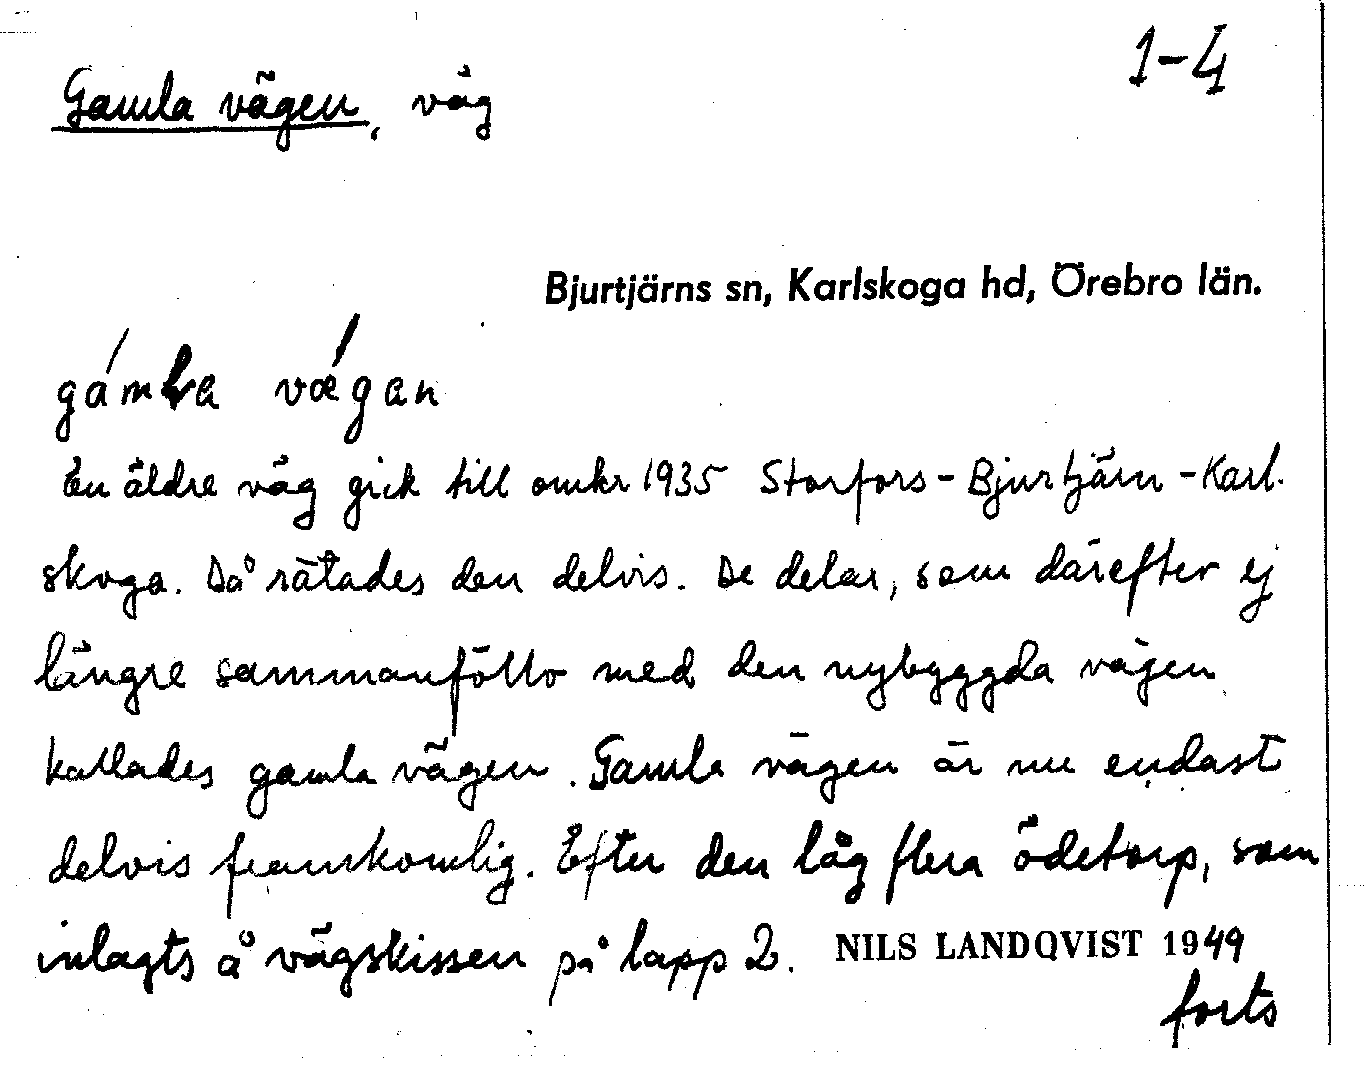 1-4
Gamla vägen, väg
Bjurtjärns sn, Karlskoga hd, Örebro län.
gámla vǽgan
En äldre väg gick till omkr 1935 Storfors - Bjurtjärn - Karl-
skoga. Då rätades den delvis. De delar, som därefter ej
längre sammanföllo med den nybyggda vägen
kallades gamla vägen. Gamla vägen är nu endast
delvis framkomlig. Efter den låg flera ödetorp, som
inlagts å vägskissen på lapp 2. NILS LANDQVIST 1949
forts